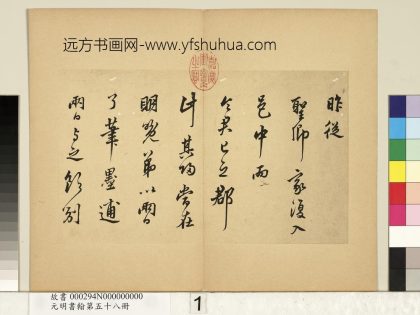 远方书画网-www.yfshuhua.com
昨從
聖卿家復入
邑中兩
令君已之郡
計其歸當在
明晚弟以兩日
了筆墨逋
兩日與之別
故書 000294N000000000
元明書翰第五十八冊
1